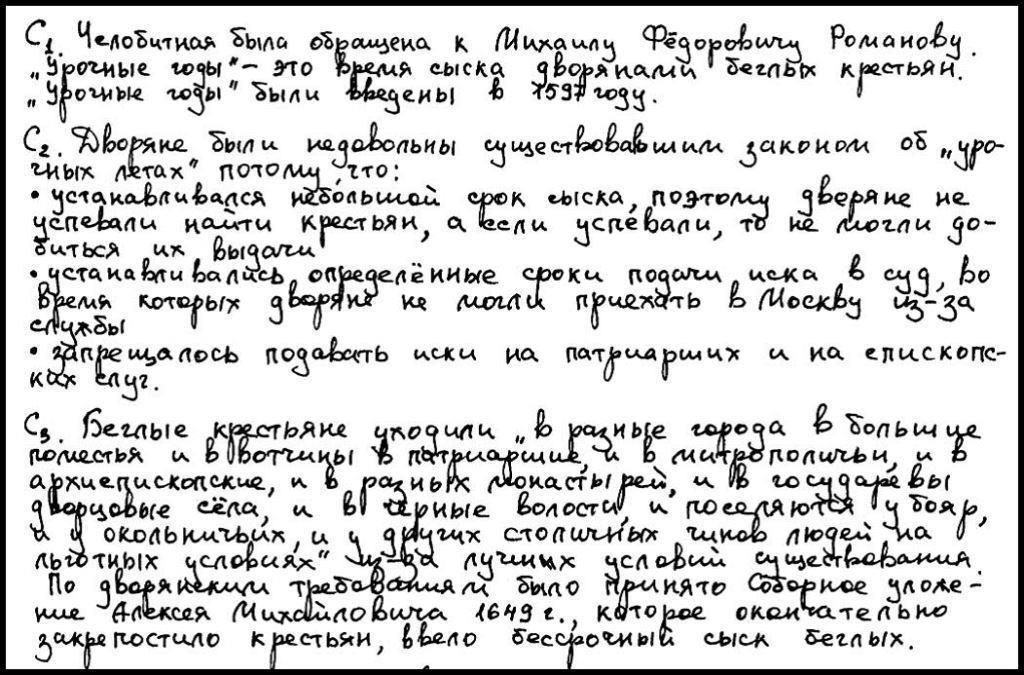 С1. Челобитная была обращена к Михаилу Фёдоровичу Романову.
„Урочные годы" – это время сыска дворянами беглых крестьян.
„Урочные годы" были введены в 1597 году.
С2. Дворяне были недовольны существовавшим законом об „уро-
чных летах" потому, что:
• устанавливался небольшой срок сыска, поэтому дворяне не
успевали найти крестьян, а если успевали, то не могли до-
биться их выдачи
• устанавливались определённые сроки подачи иска в суд, во
время которых дворяне не могли приехать в Москву из-за
службы
• запрещалось подавать иски на патриарших и на епископс-
ких слуг.
С3. Беглые крестьяне уходили „в разные города в большие
поместья и в вотчины в патриаршие, и в митрополичьи, и в
архиепископские, и в разных монастырей, и в государевы
дворцовые сёла, и в чёрные волости, и поселяются у бояр,
и у окольничьих, и у других столичных чинов людей на
льготных условиях" из-за лучших условий существования.
По дворянским требованиям было принято Соборное уложе-
ние Алексея Михайловича 1649 г., которое окончательно
закрепостило крестьян, ввело бессрочный сыск беглых.